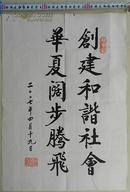 創建和諧社會
華夏闊步騰飛
二〇〇七年四月十九日